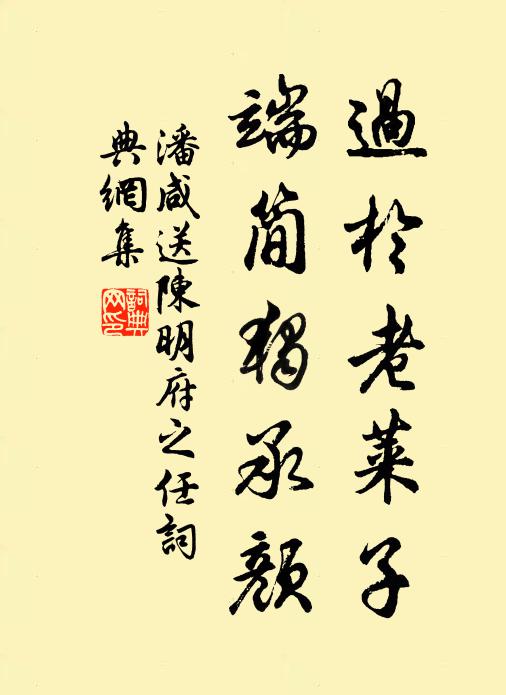 過於老萊子
端簡獨承顏
潘咸送陳明府之任詞
典網集
詞典
網印